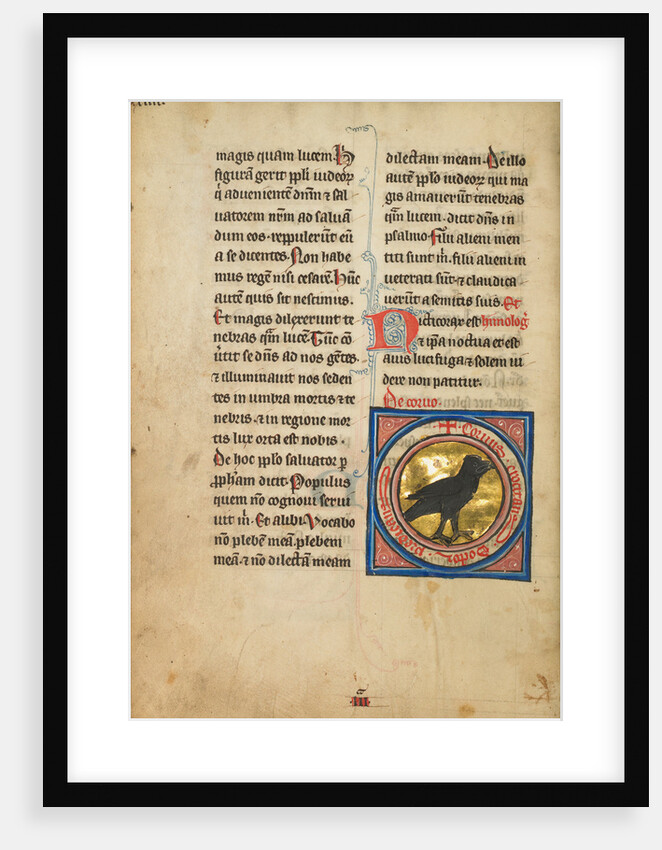 magis quam lucem. H
figurā gerit ppli iudeoꝝ
q̇ aduenientē dn̄m ⁊ sal
uatorem nr̄m ad saluā
dum eos. reppuler̄ūt eū
a se dicentes. Non habe
mus regē nisi cesarē. Hūc
autē quis sit nescimus.
Et magis dilexerunt te
nebras quā lucē. Tūc cō
uertit se dn̄s ad nos gētes.
⁊ illuminauit nos seden
tes in umbra mortis ⁊ te
nebris. ⁊ in regione mor
tis lux orta est nobis.
De hoc pplo saluator p
ꝓpham dicit. Populus
quem nō cognoui serui
uit m̄. Et alibi. Vocabo
nō plebē meā. plebem
meā. ⁊ nō dilectā meam
dilectam meam. De illo
autē pplo iudeoꝝ qui ma
gis amauerūt tenebras
quā lucem. dicit dn̄s in
psalmo. Filii alieni men
titi sunt m̄. filii alieni in
ueterati sūt. ⁊ claudica
uerūt a semitis suis. Et
Nicticorax est himoloḡ
⁊ ipa noctua et est
auis lucifuga ⁊ solem ui
dere non patitur.
De coruo.
+ Coruus
III